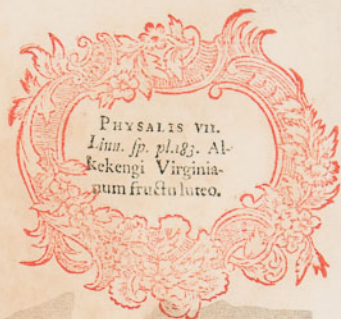 PHYSALIS VII.
Linn. sp. pl.183. Al-
kekengi Virginia-
num fructu luteo.